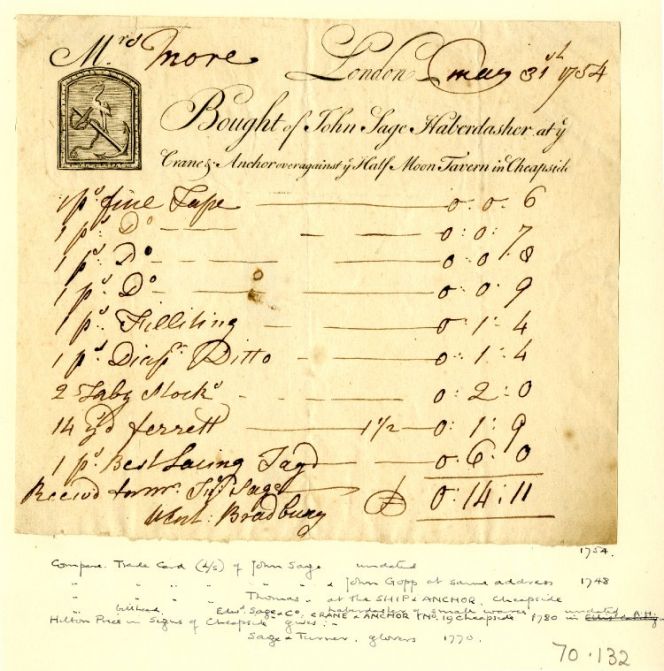 Mrs More London may 31st 1754
Bought of John Sage Haberdasher at ye
Crane & Anchor over against ye Half Moon Tavern in Cheapside
1 ps. fine Tape 0: 0: 6
1 ps. Do 0: 0: 7
1 ps. Do 0: 0: 8
1 ps. Do 0: 0: 9
1 ps. Filliting 0: 1: 4
1 ps. Ditto 0: 1: 4
2 Taby Stocks 0: 2: 0
14 yd ferrett 1½ 0: 1: 9
1 ps. Best Lacing Tagd 0: 6: 0
Sage £ 0: 14: 11
Bradbury
1754.
Compare Trade Card of John Sage undated
" " " " " & John Gopp at same address 1748
" " " " Thomas " at the SHIP & ANCHOR, Cheapside
" billhead Edwd. Sage & Co, haberdashers of small wares undated
CRANE & ANCHOR No. 19 Cheapside 1780 in
Hilton Price in Signs of Cheapside gives:-
Sage & Turner, glovers 1770.
70.132